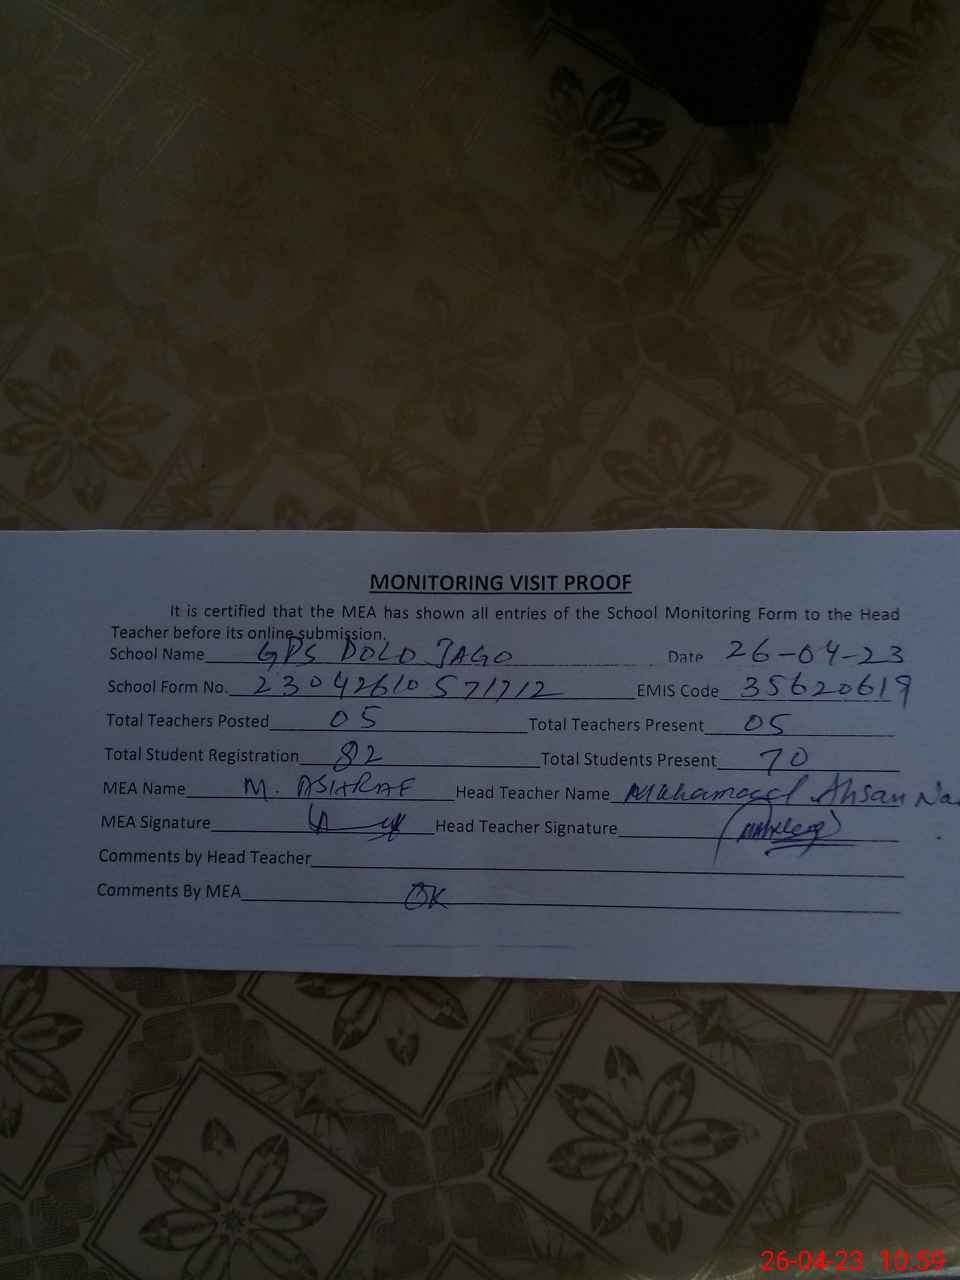 MONITORING VISIT PROOF
It is certified that the MEA has shown all entries of the School Monitoring Form to the Head
Teacher before its online submission.
School Name GPS DOLO JAGO Date 26-04-23
School Form No. 23042610571712 EMIS Code 35620619
Total Teachers Posted 05 Total Teachers Present 05
Total Student Registration 82 Total Students Present 70
MEA Name M. ASHRAF Head Teacher Name Muhamaad Ahsan
MEA Signature Head Teacher Signature
Comments by Head Teacher
Comments By MEA OK
26-04-23 10:59